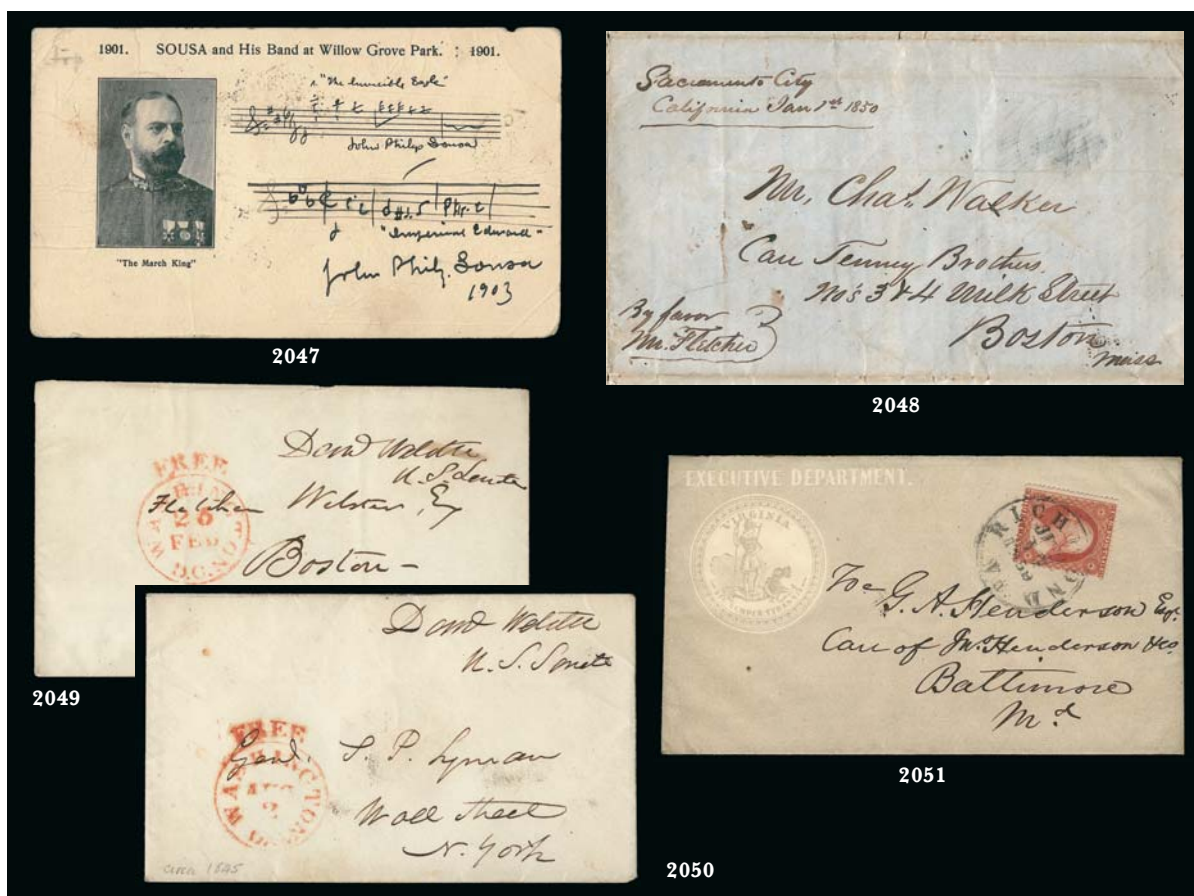 1901. SOUSA and His Band at Willow Grove Park. 1901.
"The Invincible Eagle"
John Philip Sousa
"Imperial Edward"
John Philip Sousa
1903
"The March King"
2047
Sacramento City
California Jan 1st 1850
Mr. Chas. Walker
Care Tenney Brothers.
No's 3 & 4 Milk Street
Boston
Mass
By favor
Mr. Fletcher
2048
Danl Webster
U.S. Senate
FREE
WASHINGTON D.C.
26
FEB
Fletcher Webster, Esq
Boston -
2049
Danl Webster
U.S. Senate
FREE
WASHINGTON
AUG
2
Genl. S. P. Lyman
Wall Street
N. York
circa 1845
2050
EXECUTIVE DEPARTMENT.
VIRGINIA
RICHMOND VA
To G. A. Henderson Esq.
Care of Jno. Henderson & Co
Baltimore
Md
2051